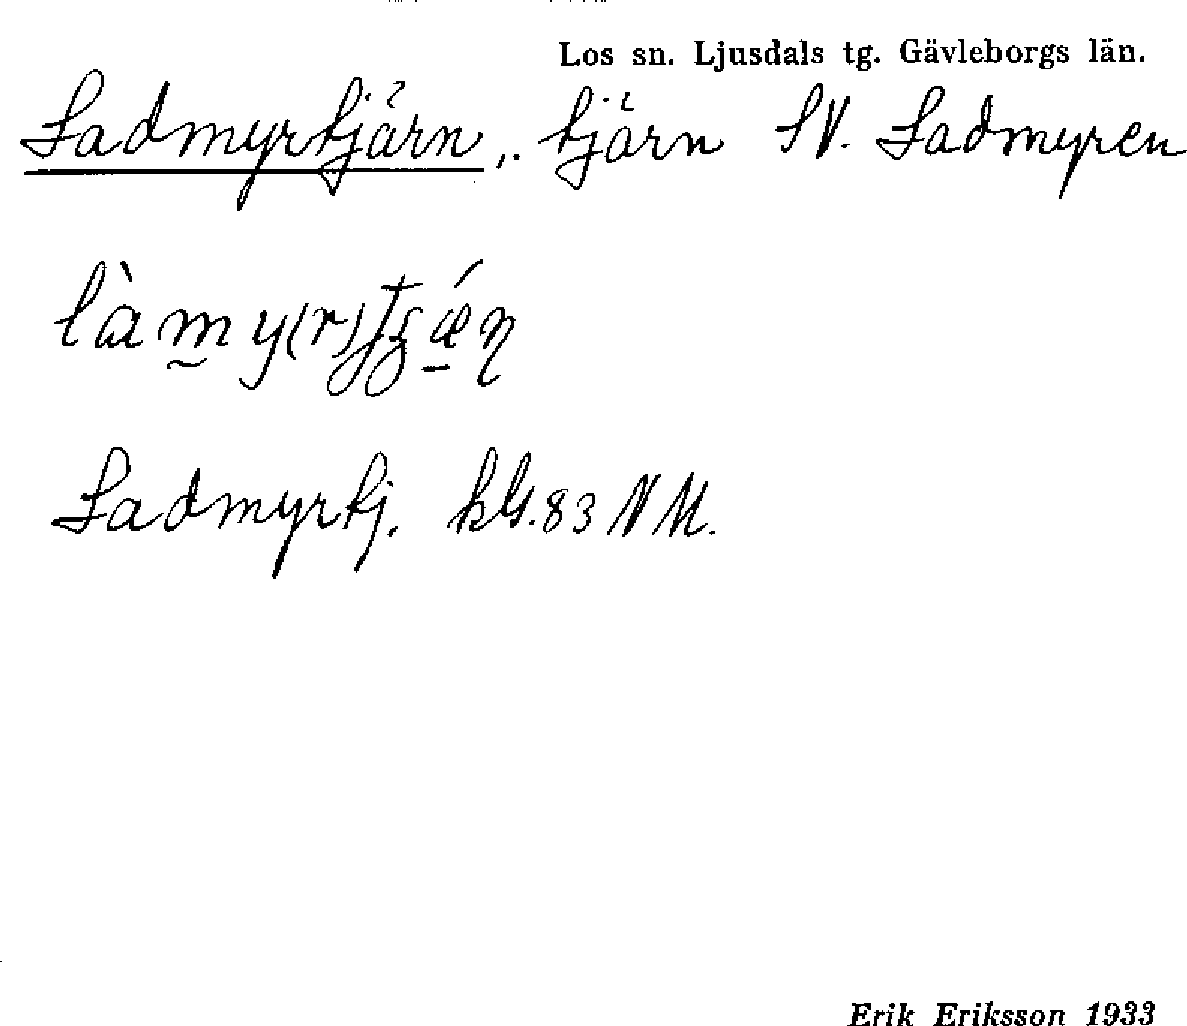 Los sn. Ljusdals tg. Gävleborgs län.
Ladmyrtjärn, tjärn SV. Ladmyren
Ladmyrtj. kbl. 83 NM.
Erik Eriksson 1933